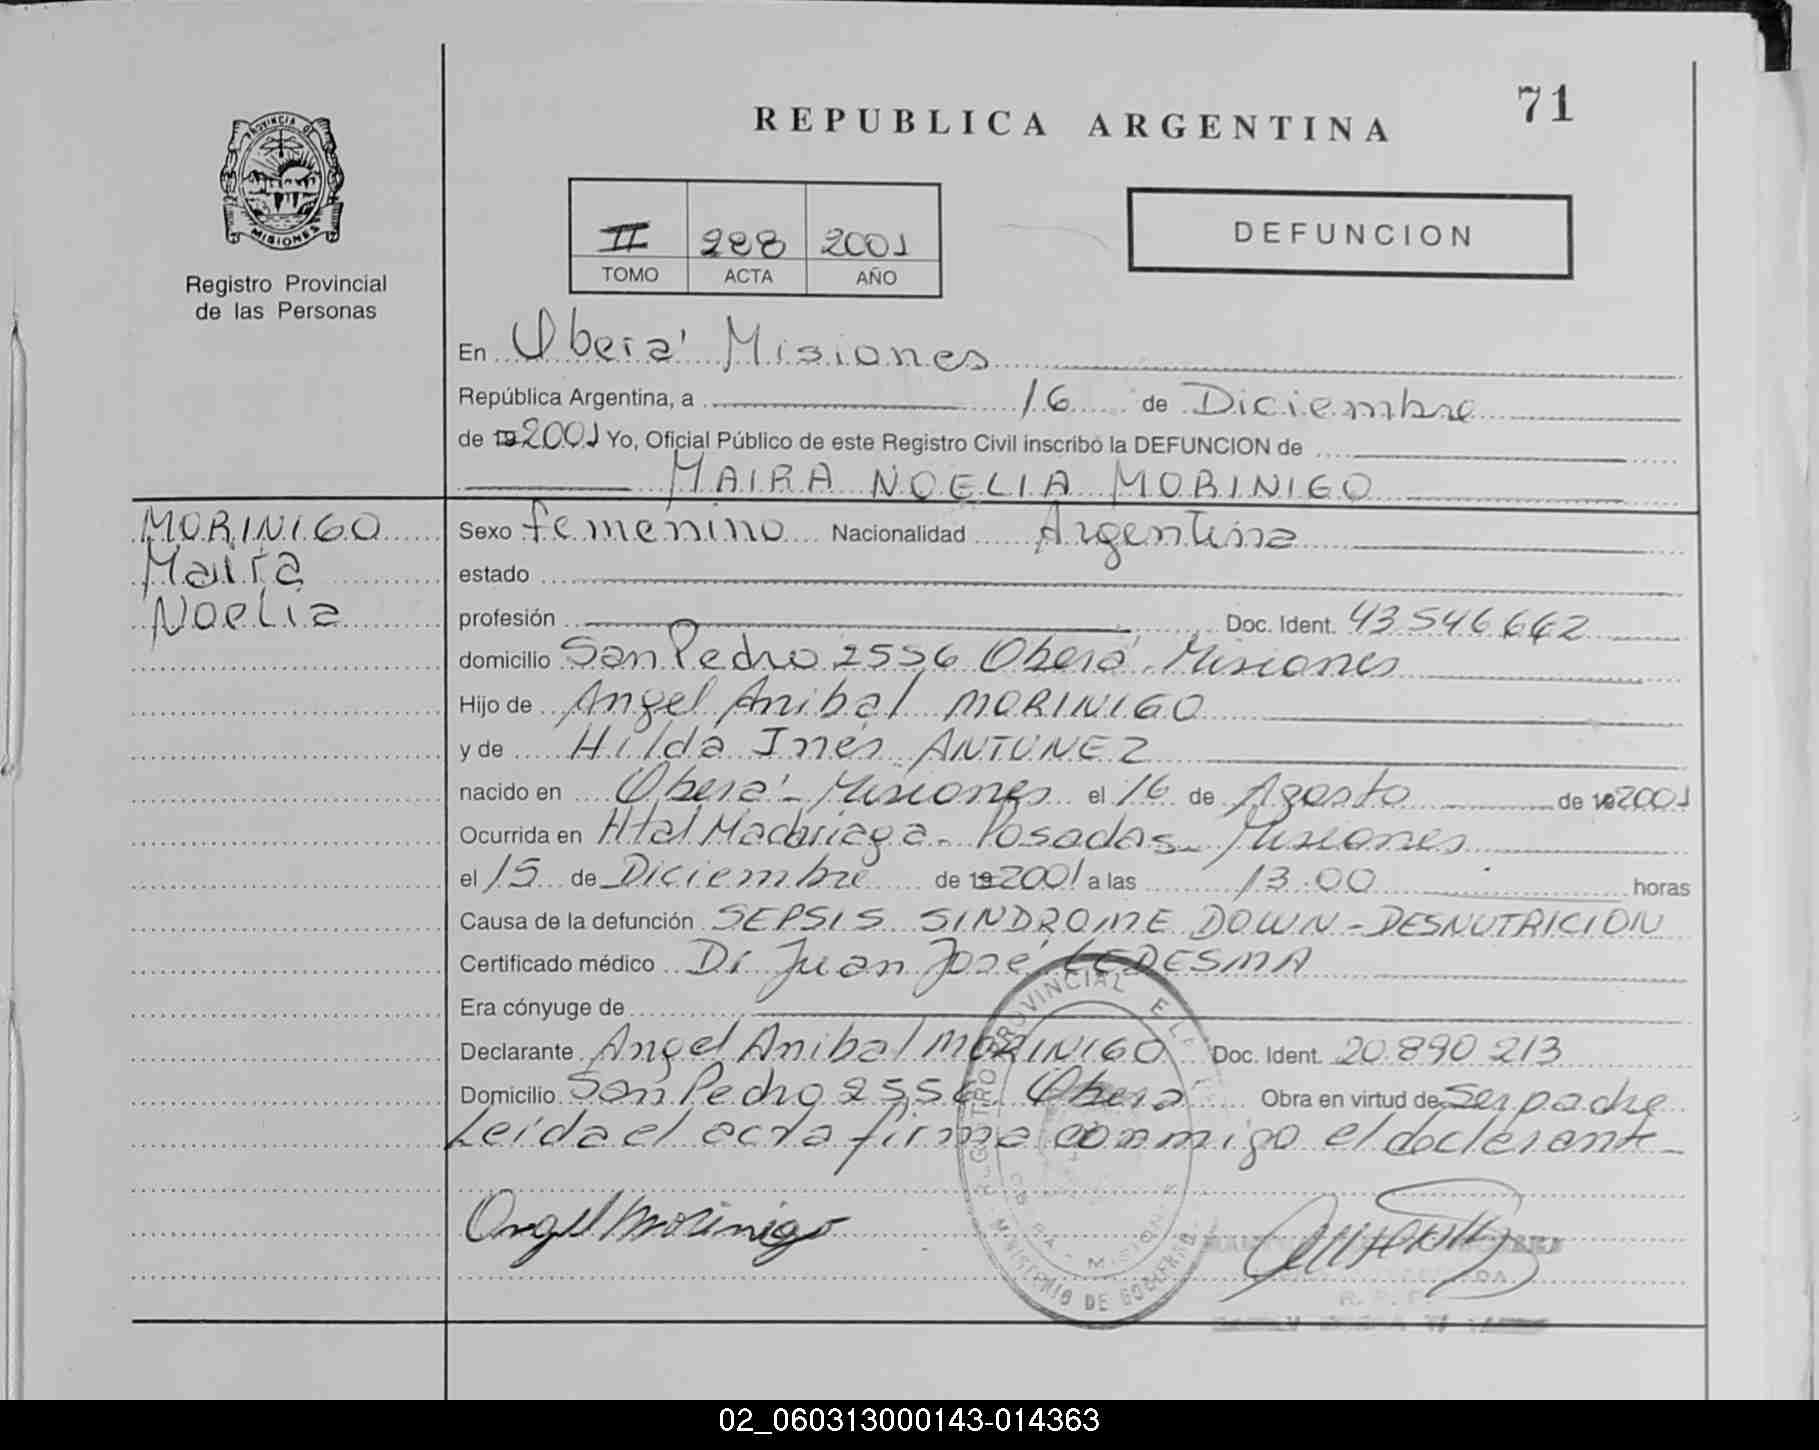 71
REPUBLICA ARGENTINA
PROVINCIA DE
MISIONES
Registro Provincial
de las Personas
II 288 2001
TOMO ACTA AÑO
DEFUNCION
En Oberá Misiones
República Argentina, a 16 de Diciembre
de 19 2001 Yo, Oficial Público de este Registro Civil inscribo la DEFUNCION de
MAIRA NOELIA MORINIGO
MORINIGO
Maira
Noelia
Sexo femenino Nacionalidad Argentina
estado
profesión Doc. Ident. 43 546 662
domicilio San Pedro 2556 Oberá Misiones
Hijo de Angel Anibal MORINIGO
y de Hilda Inés ANTUNEZ
nacido en Oberá - Misiones el 16 de Agosto de 19 2001
Ocurrida en Htal Madariaga - Posadas - Misiones
el 15 de Diciembre de 19 2001 a las 13:00 horas
Causa de la defunción SEPSIS SINDROME DOWN - DESNUTRICION
Certificado médico Dr Juan José LEDESMA
Era cónyuge de
Declarante Angel Anibal MORINIGO Doc. Ident. 20.890 213
Domicilio San Pedro 2556 Oberá Obra en virtud de ser padre
Leída el acta firma conmigo el declarante -
Angel Morinigo
REGISTRO PROVINCIAL
MINISTERIO DE GOBIERNO
02_060313000143-014363